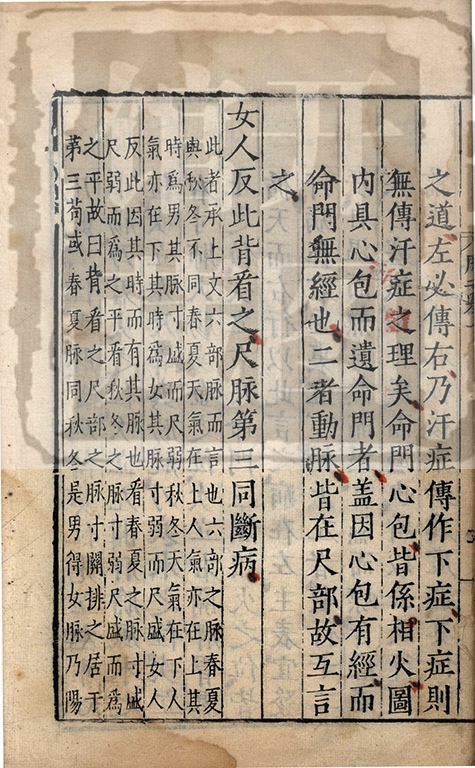 之道左必傳右乃汗症傳作下症下症則
無傳汗症之理矣命門心包皆係相火圖
內具心包而遺命門者蓋因心包有經而
命門無經也二者動脉皆在尺部故互言
之
女人反此背看之尺脉第三同斷病
此者承上文六部脉而言也六部之脉春夏
與秋冬不同春夏天氣在上人氣亦在上其
時爲男其脉寸盛而尺弱秋冬天氣在下人
氣亦在下其時爲女其脉寸弱而尺盛女人
反此因其時而有其脉也看春夏之脉寸盛
尺弱而爲之平看秋冬之脉寸弱尺盛而爲
之平故曰背看之尺部之脉寸關排之居于
第三苟或春夏脉同秋冬是男得女脉乃陽